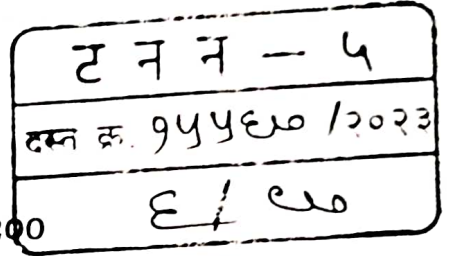 ट न न - ५
दस्त क्र. १५५६७ /२०२३
६ / ९७
00